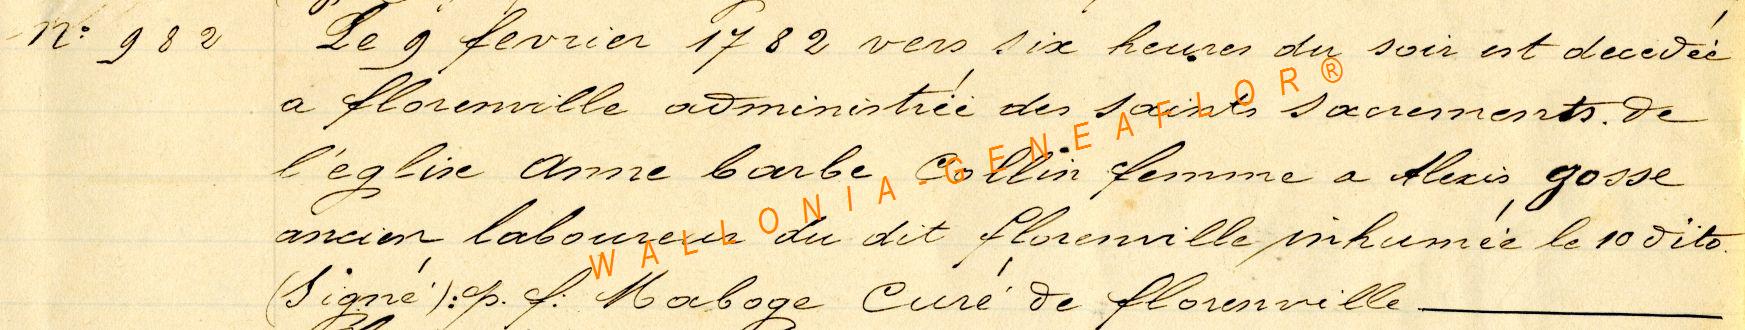 N° 982 Le 9 fevrier 1782 vers six heures du soir est decedéé
a florenville administréé des saints sacrements. de
l'église Anne barbe Collin femme a Alexis gosse
ancien laboureur du dit florenville inhumée le 10 dito.
(Signé): p. f. Maboge Curé de florenville
WALLONIA-GENEAFLOR®